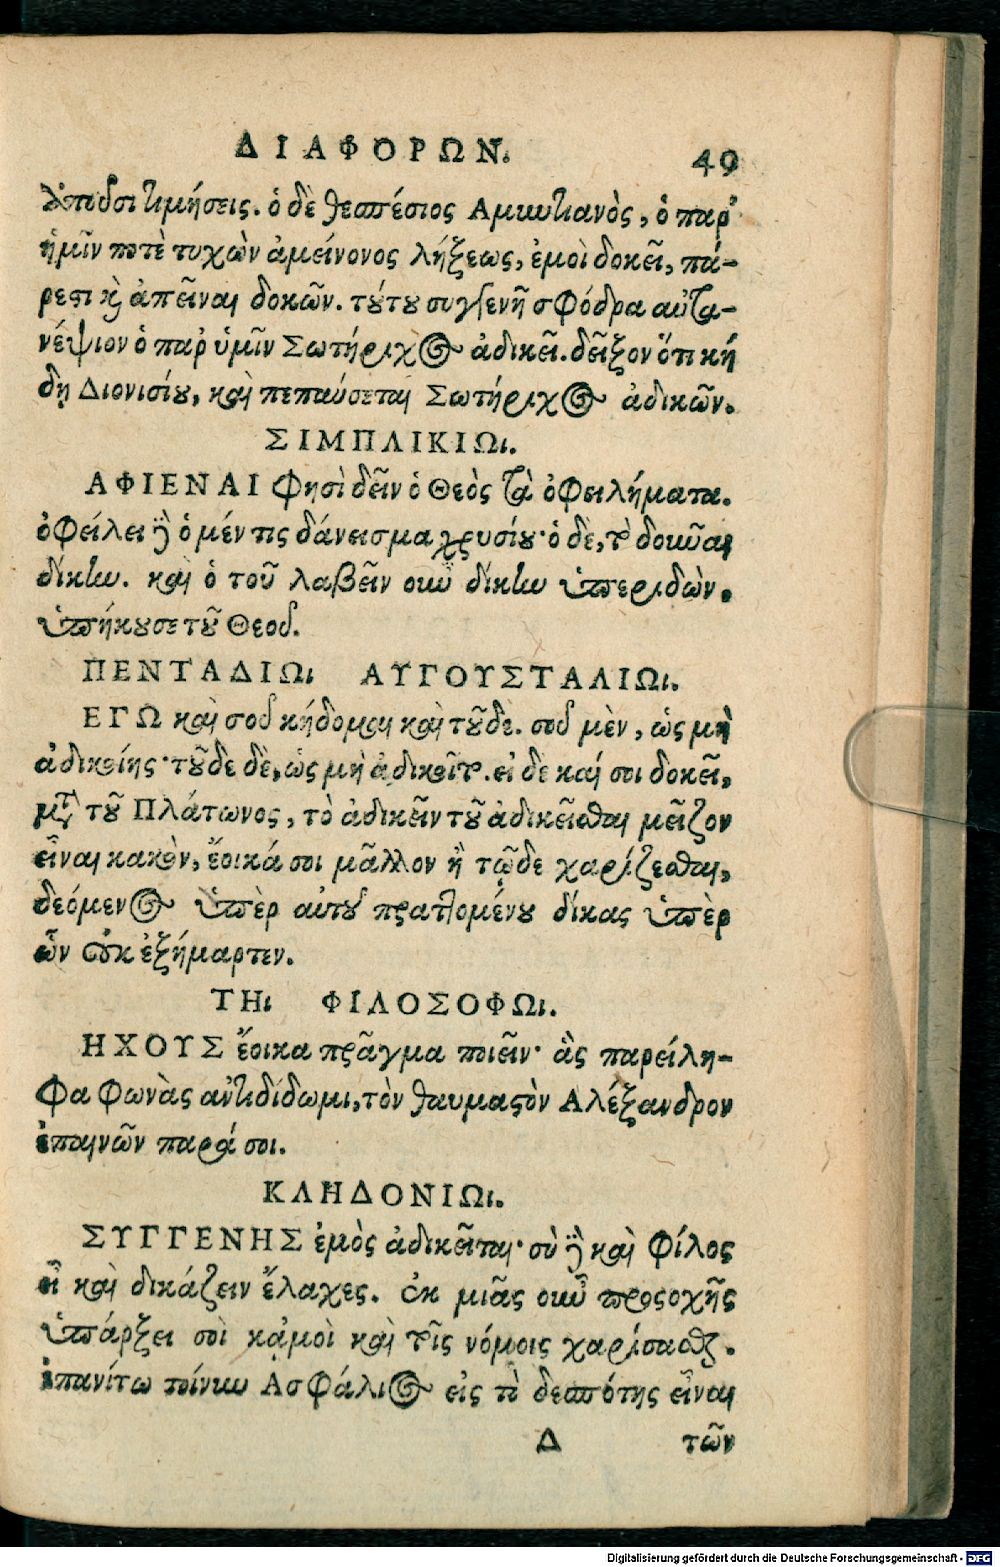 ΔΙΑΦΟΡΩΝ. 49
λόπουσι τιμήσεις. ὁ δὲ θεσπέσιος Αμμυκιανὸς, ὁ παρ'
ἡμῖν ποτὲ τυχὼν ἀμείνονος λήξεως, ἐμοὶ δοκεῖ, πά-
ρεστι καὶ ἀπεῖναι δοκῶν. τούτου συγγενῆ σφόδρα αὐτα-
νέψιον ὁ παρ' ὑμῖν Σωτήριχος ἀδικεῖ. δεῖξον ὅτι κή
δῃ Διονυσίου, καὶ πεπαύσεται Σωτήριχος ἀδικῶν.
ΣΙΜΠΛΙΚΙΩι.
ΑΦΙΕΝΑΙ φησὶ δεῖν ὁ Θεὸς τὰ ὀφειλήματα.
ὀφείλει δὲ ὁ μέν τις δάνεισμα χρυσίου· ὁ δὲ, τὸ δοῦναι
δίκην. καὶ ὁ τοῦ λαβεῖν οὖν δίκην ὑπεριδὼν.
ὑπήκουσε τοῦ Θεοῦ.
ΠΕΝΤΑΔΙΩι ΑΥΓΟΥΣΤΑΛΙΩι.
ΕΓΩ καὶ σοῦ κήδομαι καὶ τοῦδε. σοῦ μὲν, ὡς μὴ
ἀδικοίης· τοῦδε δὲ, ὡς μὴ ἀδικοῖτο. εἰ δὲ καί σοι δοκεῖ,
μετὰ τοῦ Πλάτωνος, τὸ ἀδικεῖν τοῦ ἀδικεῖσθαι μεῖζον
εἶναι κακὸν, ἔοικά σοι μᾶλλον ἢ τῷδε χαρίζεσθαι,
δεόμενος ὑπὲρ αὐτοῦ πραττομένου δίκας ὑπὲρ
ὧν οὐκ ἐξήμαρτεν.
ΤΗι ΦΙΛΟΣΟΦΩι.
ΗΧΟΥΣ ἔοικα πρᾶγμα ποιεῖν· ἃς παρείλη-
φα φωνὰς ἀντιδίδωμι, τὸν θαυμαστὸν Αλέξανδρον
ἐπαινῶν παρά σοι.
ΚΛΗΔΟΝΙΩι.
ΣΥΓΓΕΝΗΣ ἐμὸς ἀδικεῖται· σὺ δὲ καὶ φίλος
εἶ καὶ δικάζειν ἔλαχες. ἐκ μιᾶς οὖν προσοχῆς
ὑπάρξει σοὶ κἀμοὶ καὶ τοῖς νόμοις χαρίσασθαι.
ἐπανίτω τοίνυν Ασφάλιος εἰς τὸ δεσπότης εἶναι
Δ τῶν
Digitalisierung gefördert durch die Deutsche Forschungsgemeinschaft - DFG